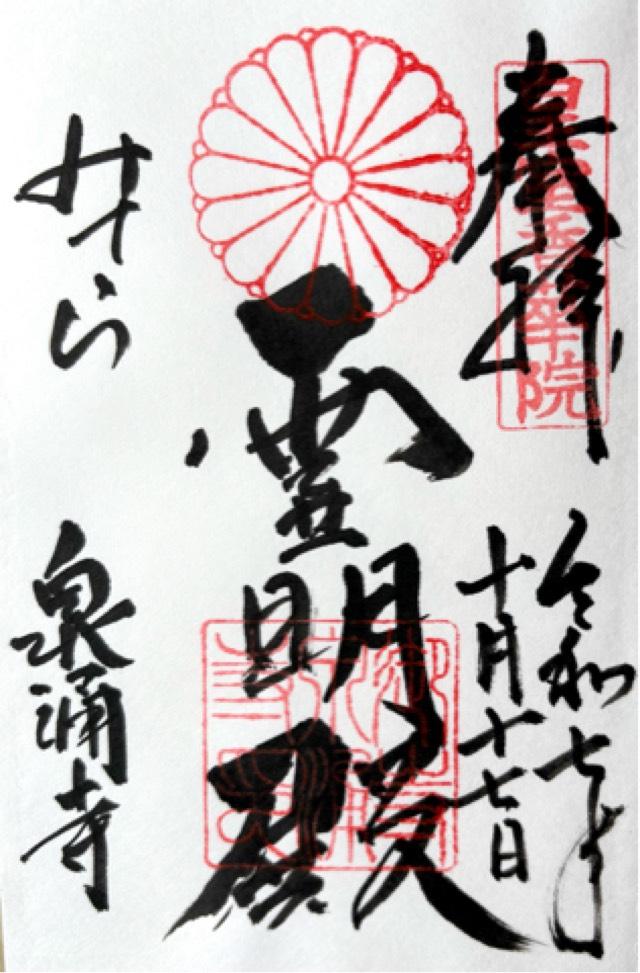 奉拝
皇室香華院
令和七年
十月十七日
霊明殿
みてら
泉涌寺